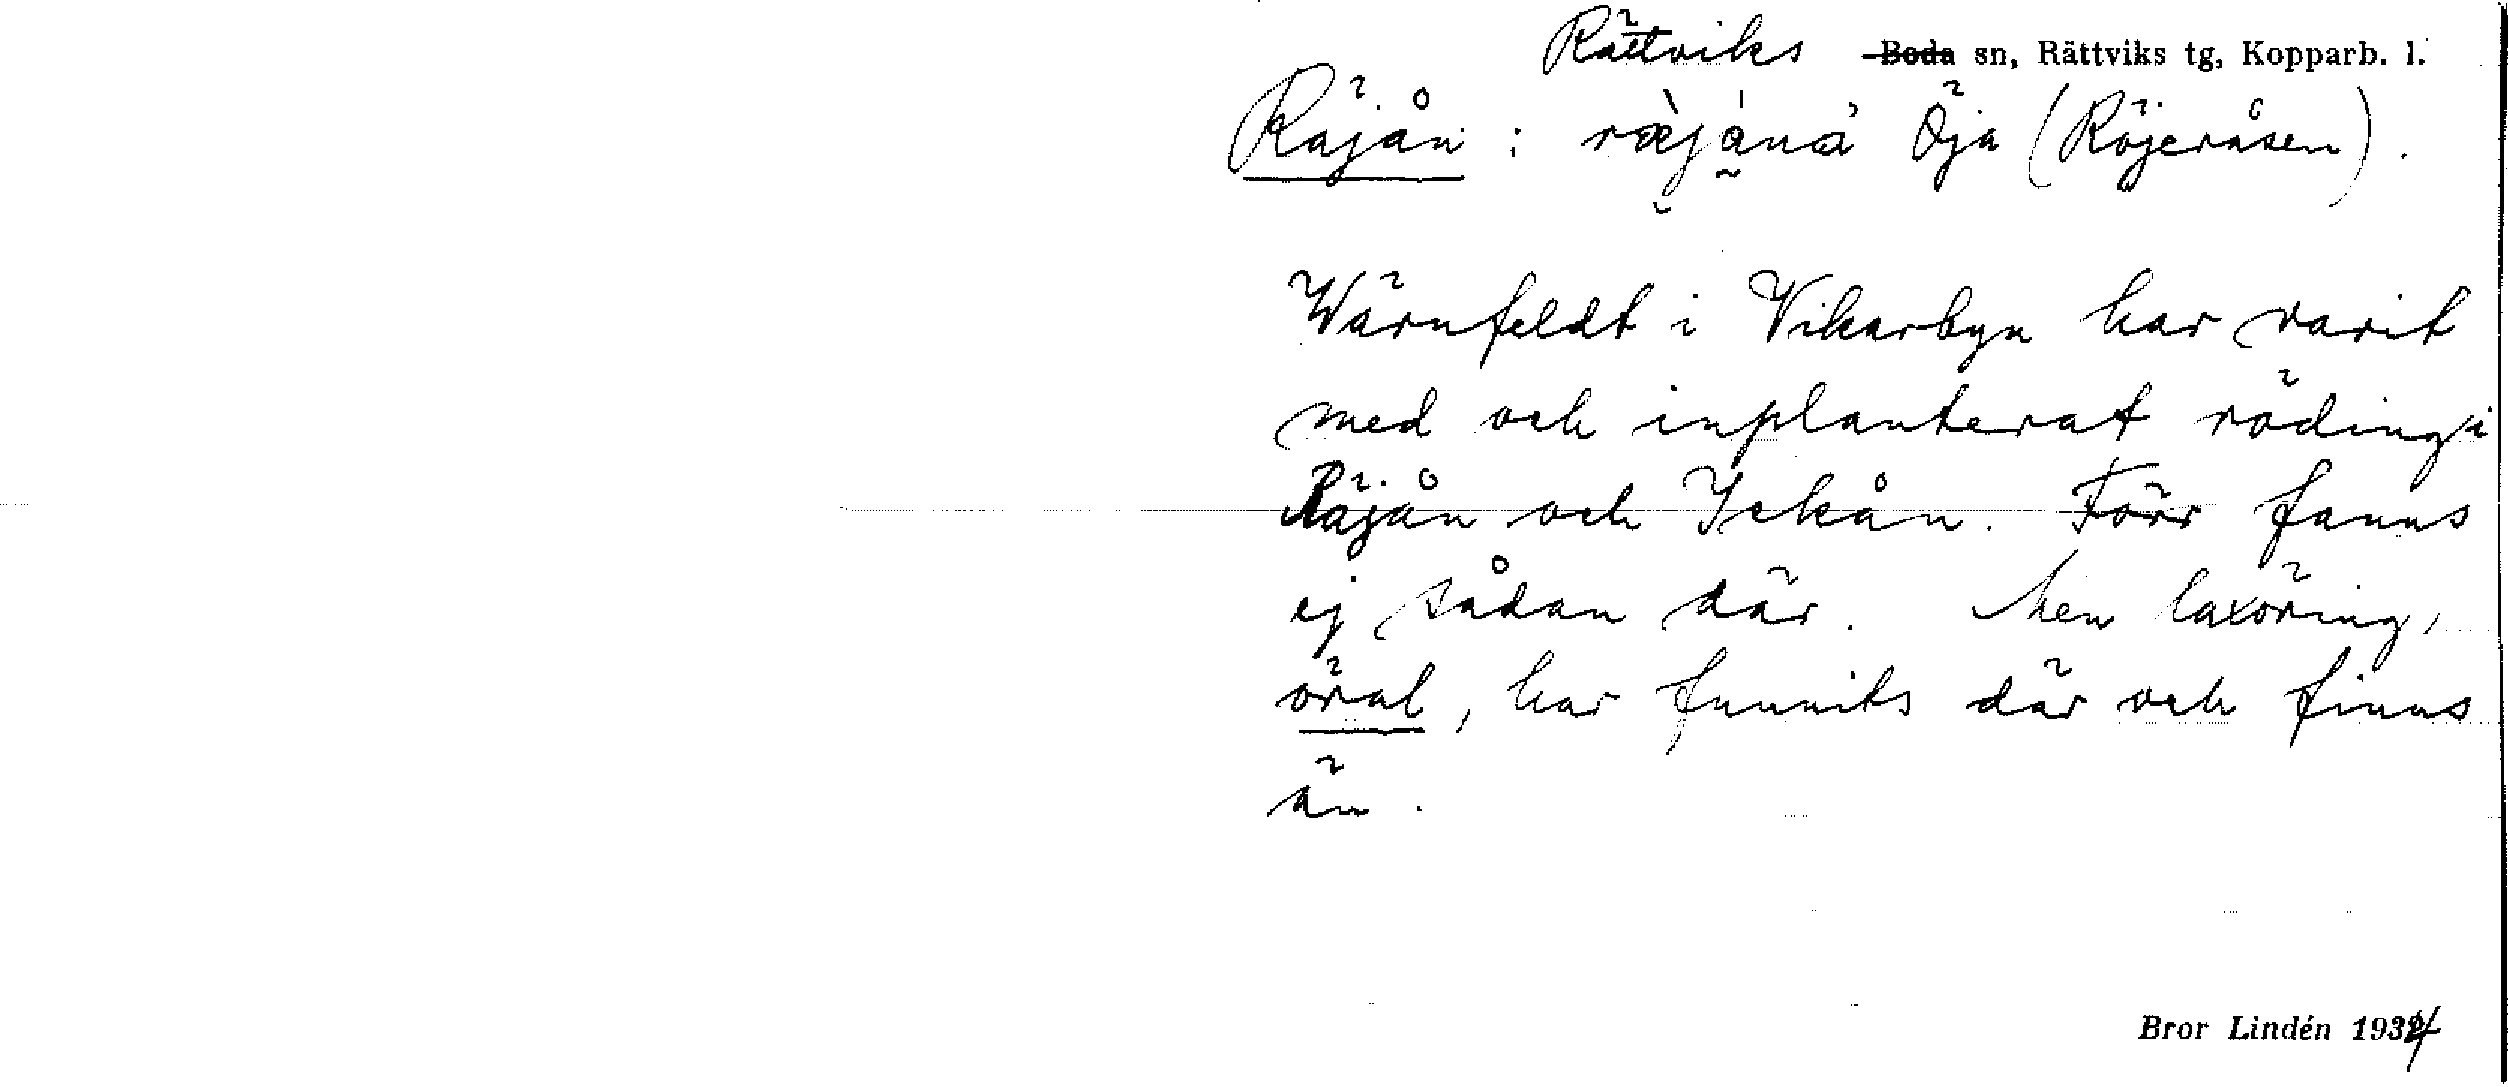 Rättviks Boda sn, Rättviks tg, Kopparb. l.
Räjån : ræ̀jánà Öja (Röjeråsen).
Wärnfeldt i Vikarbyn har varit
med och inplanterat röding i
Räjån och Ickån. Förr fanns
ej sådan där. Men laxöring,
öral, har funnits där och finns
än.
Bror Lindén 1934